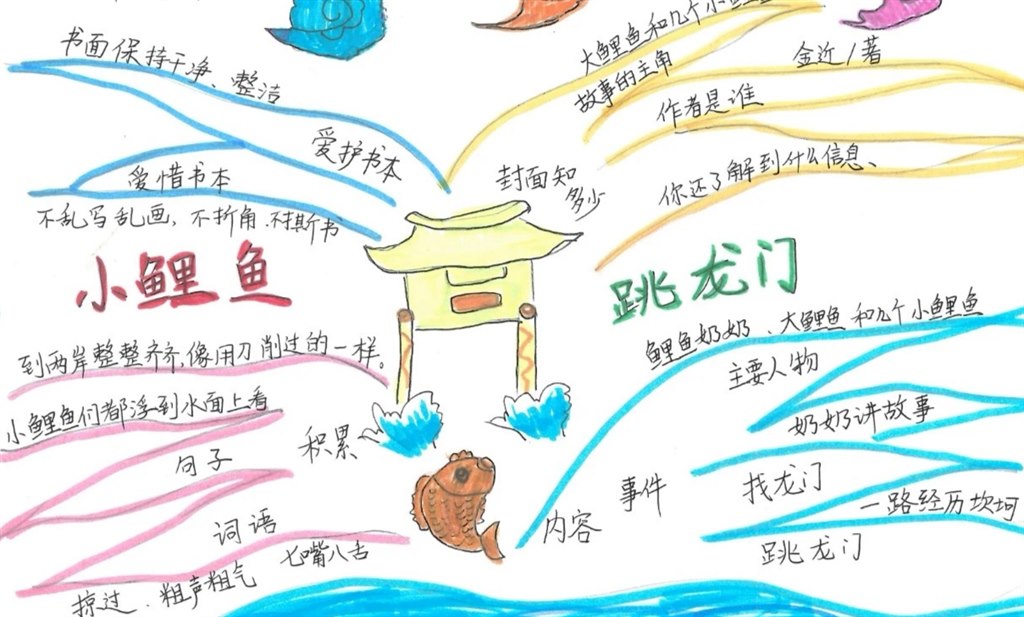 书面保持干净、整洁
爱护书本
爱惜书本
不乱写乱画，不折角、不撕书
大鲤鱼和几个小鲤鱼
故事的主角
金近/著
作者是谁
封面知
多少
你还了解到什么信息、
小鲤鱼
跳龙门
到两岸整整齐齐，像用刀削过的一样。
小鲤鱼们都浮到水面上看
积累
句子
词语
七嘴八舌
掠过、粗声粗气
鲤鱼奶奶、大鲤鱼和几个小鲤鱼
主要人物
奶奶讲故事
事件
找龙门
一路经历坎坷
内容
跳龙门